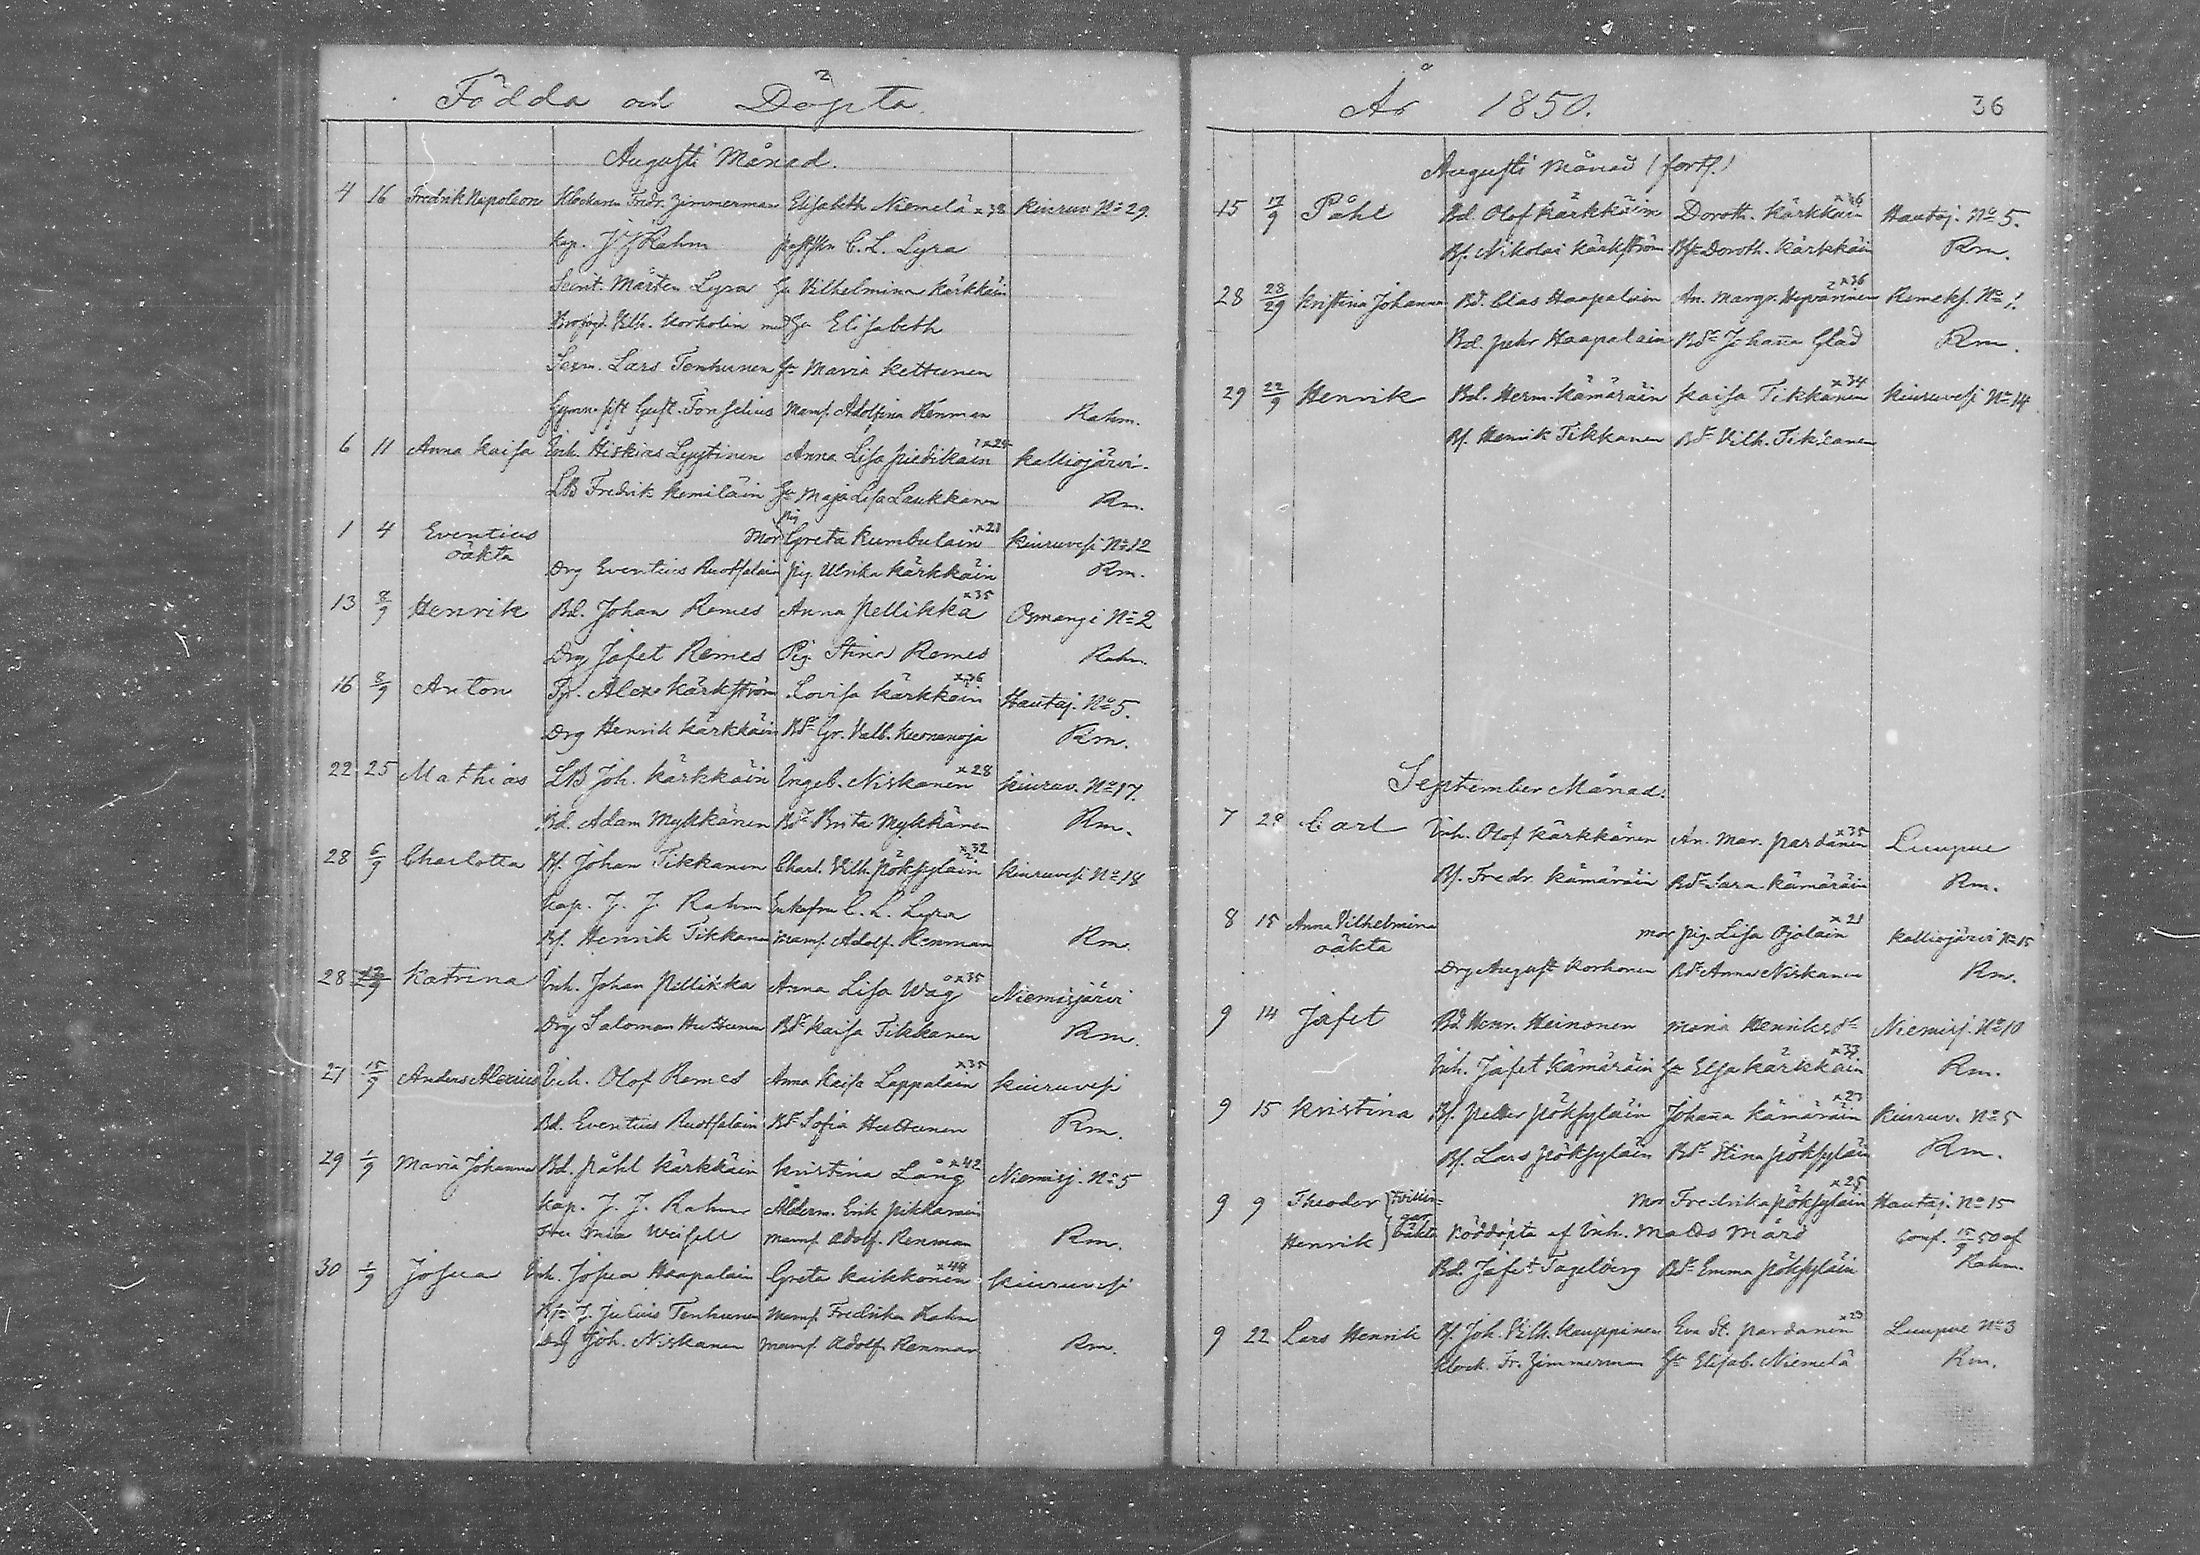 Födda och Döpta
Augusti Månad.
4 16 Fredrik Napoleon Klockaren Fredr. Zimmerman Elisabeth Niemelä x38 Kiuruv. No 29.
Kap. J J Rahm C. L. Lyra
Mårten Lyra Vilhelmina Kärkkäin
Vilh. Korholin med Elisabeth
Sexm. Lars Tenhunen Maria Kettunen
Gust. Fonselius Mams. Adolfina Renman Rahm.
6 11 Anna Kaisa Inh. Hiskias Lyytinen Anna Lisa Piedikäin x25 Kalliojärvi.
LB Fredrik Kemiläin Maja Lisa Laukkanen Rm.
1 4 Eventius oäkta Mor pig Greta Kumbulain x21 Kiuruvesi No 12
Drg Eventius Ruotsalain pig. Ulrika Kärkkäin Rm.
13 8/9 Henrik Bd. Johan Remes Anna Pellikka x35 Osmangi No 2
Drg Jafet Remes Pig. Stina Remes Rahm.
16 8/9 Anton Alex. Kärkström Lovisa Kärkkäin x36 Hautaj. No 5.
Drg Henrik Kärkkäin Bdr Gr. Valb. Kuonanoja Rm.
22 25 Mathias LB Joh. Kärkkäin Ingeb. Niskanen x28 Kiuruv. No 17.
Bd. Adam Mykkänen Bdr Brita Mykkänen Rm.
28 6/9 Charlotta Bs. Johan Tikkanen Charl. Vilh. Pöksyläin x32 Kiuruvesi No 18
Kap. J. J. Rahm Enkefru C. L. Lyra
Bs. Henrik Tikkanen Mams. Adolf. Renman Rm.
28 Katrina Inh. Johan Pellikka Anna Lisa Wåg x35 Niemisjärvi
Drg Saloman Huttunen Bdr Kaisa Tikkanen Rm.
27 15/9 Anders Alexius Inh. Olof Remes Anna Kaisa Lappalain x35 Kiuruvesi
Bd. Eventius Ruotsalain Bdr Sofia Huttunen Rm.
29 1/9 Maria Johanna Bd. Påhl Kärkkäin Kristina Lång x42 Niemisj. No 5
Kap. J. J. Rahm Ålderm. Erik Pikkarain
Fru Mia Weisell Mams. Adolf. Renman Rm.
30 1/9 Josua Inh. Josua Haapalain Greta Kaikkonen x44 Kiuruvesi
J. Julius Tenhunen Mams. Fredrika Rahm
Drg Joh. Niskanen Mams. Adolf. Renman Rm.
År 1850. 36
Augusti Månad (forts.)
15 17/9 Påhl Bd. Olof Kärkkäin Doroth. Kärkkäin x36 Hautaj. No 5.
Bs. Nikolai Kärkström Doroth. Kärkkäin Rm.
28 28/29 Kristina Johanna Bd. Elias Haapalain An. Margr. Hyvärinen x36 Remeks. No 1.
Bd. Pehr Haapalain Bdr Johanna Glad Rm.
29 22/9 Henrik Bd. Herm. Kämäräin Kaisa Tikkanen x34 Kiuruvesi No 14
Bs. Henrik Tikkanen Bdr Vilh. Tikkanen
September Månad.
7 29 Carl Inh. Olof Kärkkänen An. Mar. Pardanen x35 Luupue
Bs. Fredr. Kämäräin Bdr Sara Kämäräin Rm.
8 15 Anna Vilhelmina oäkta mor pig. Lisa Ojalain x21 Kalliojärvi No 15
Drg August Korhonen Bdr Anna Niskanen Rm.
9 14 Jafet Bd. Henr. Heinonen Maria Henriksdr Niemisj. No 10
Inh. Jafet Kämäräin Elsa Kärkkäin x33 Rm.
9 15 Kristina Bs. Petter Pöksyläin Johanna Kämäräin x27 Kiuruv. No 5
Bs. Lars Pöksyläin Bdr Stina Pöksyläin Rm.
9 9 Theodor Tvillin- Mor Fredrika Pöksyläin x25 Hautaj. No 15
Henrik gar oäkta Nöddöpta af Inh. Mats Mård Conf. 15/9 50 af
Bd. Jafet Tagelberg Bdr Emma Pöksyläin Rahm.
9 22 Lars Henrik Bs. Joh. Vilh. Kauppinen Eva St. Pardanen x23 Luupue No 3
Klock. Fr. Zimmerman Elisab. Niemelä Rm.